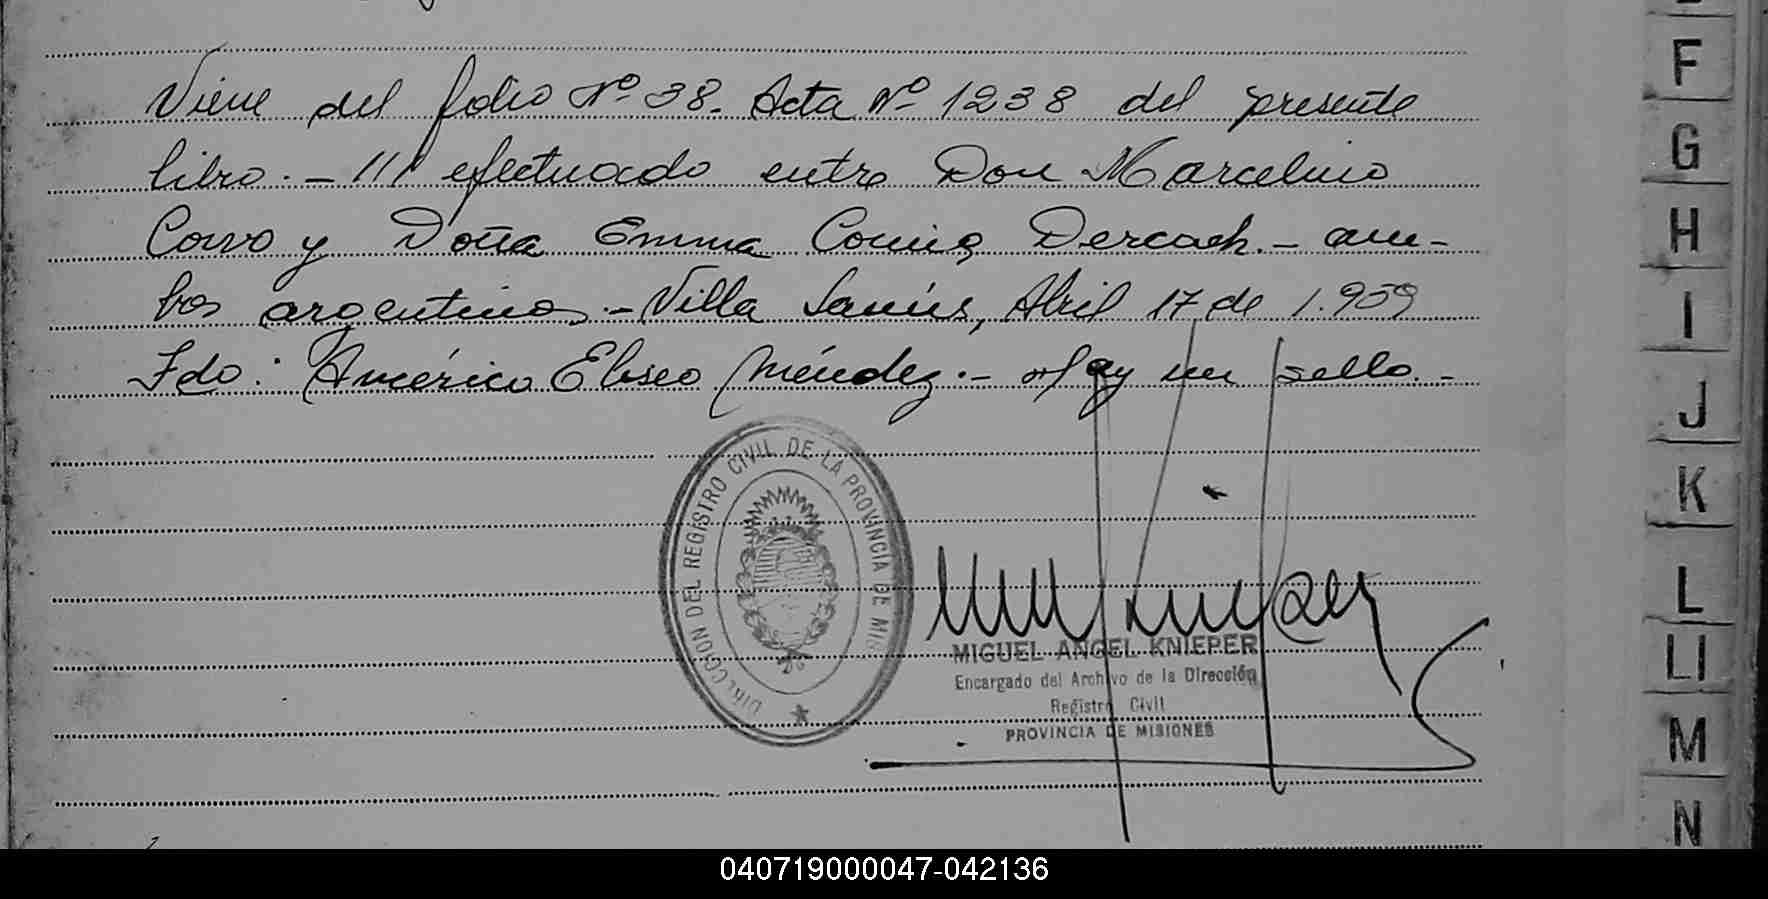 Viene del folio Nº 38. Acta Nº 1238 del presente
libro. - /// efectuado entre Don Marcelino
y Doña Emma Dercach. - am-
bos argentinos. - Villa Sarmientos, Abril 17 de 1.959
Fdo: Américo Eliseo Méndez. - Hay un sello. -
DIRECCION DEL REGISTRO CIVIL DE LA PROVINCIA DE MIS
MIGUEL ANGEL KNIEPER
Encargado del Archivo de la Dirección
Registro Civil
PROVINCIA DE MISIONES
F
G
H
I
J
K
L
Ll
M
N
040719000047-042136